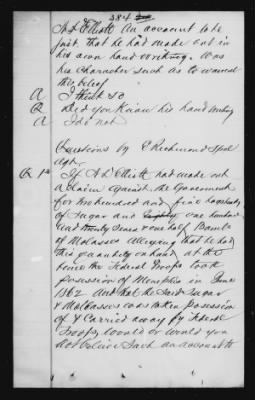 284
A. D. Elliott An account to be
just. that he had made out in
his own hand writing. Was
his character such as to warrant
this belief
A I think so
Q Did you Know his hand writing
A I do not
Questions by E Richmond Spcl
Agt.
Q 1st If A D Elliott had made out
a claim against the Government
for one hundred and five hogsheads
of Sugar and one hundred
and seven & one half Barrels
of Molasses Alleging that he had
this quantity on hand at the
time the Federal Troops took
possession of Memphis in June
1862 And that the said Sugar
& Molasses was taken possession
of & Carried away by Federal
Troops, Would or Would you
Not believe Such an account to